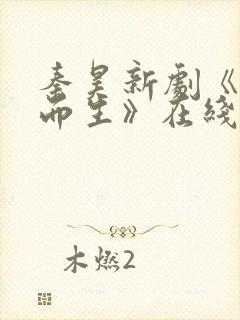 秦昊新劇《
而生》在綫
木燃2